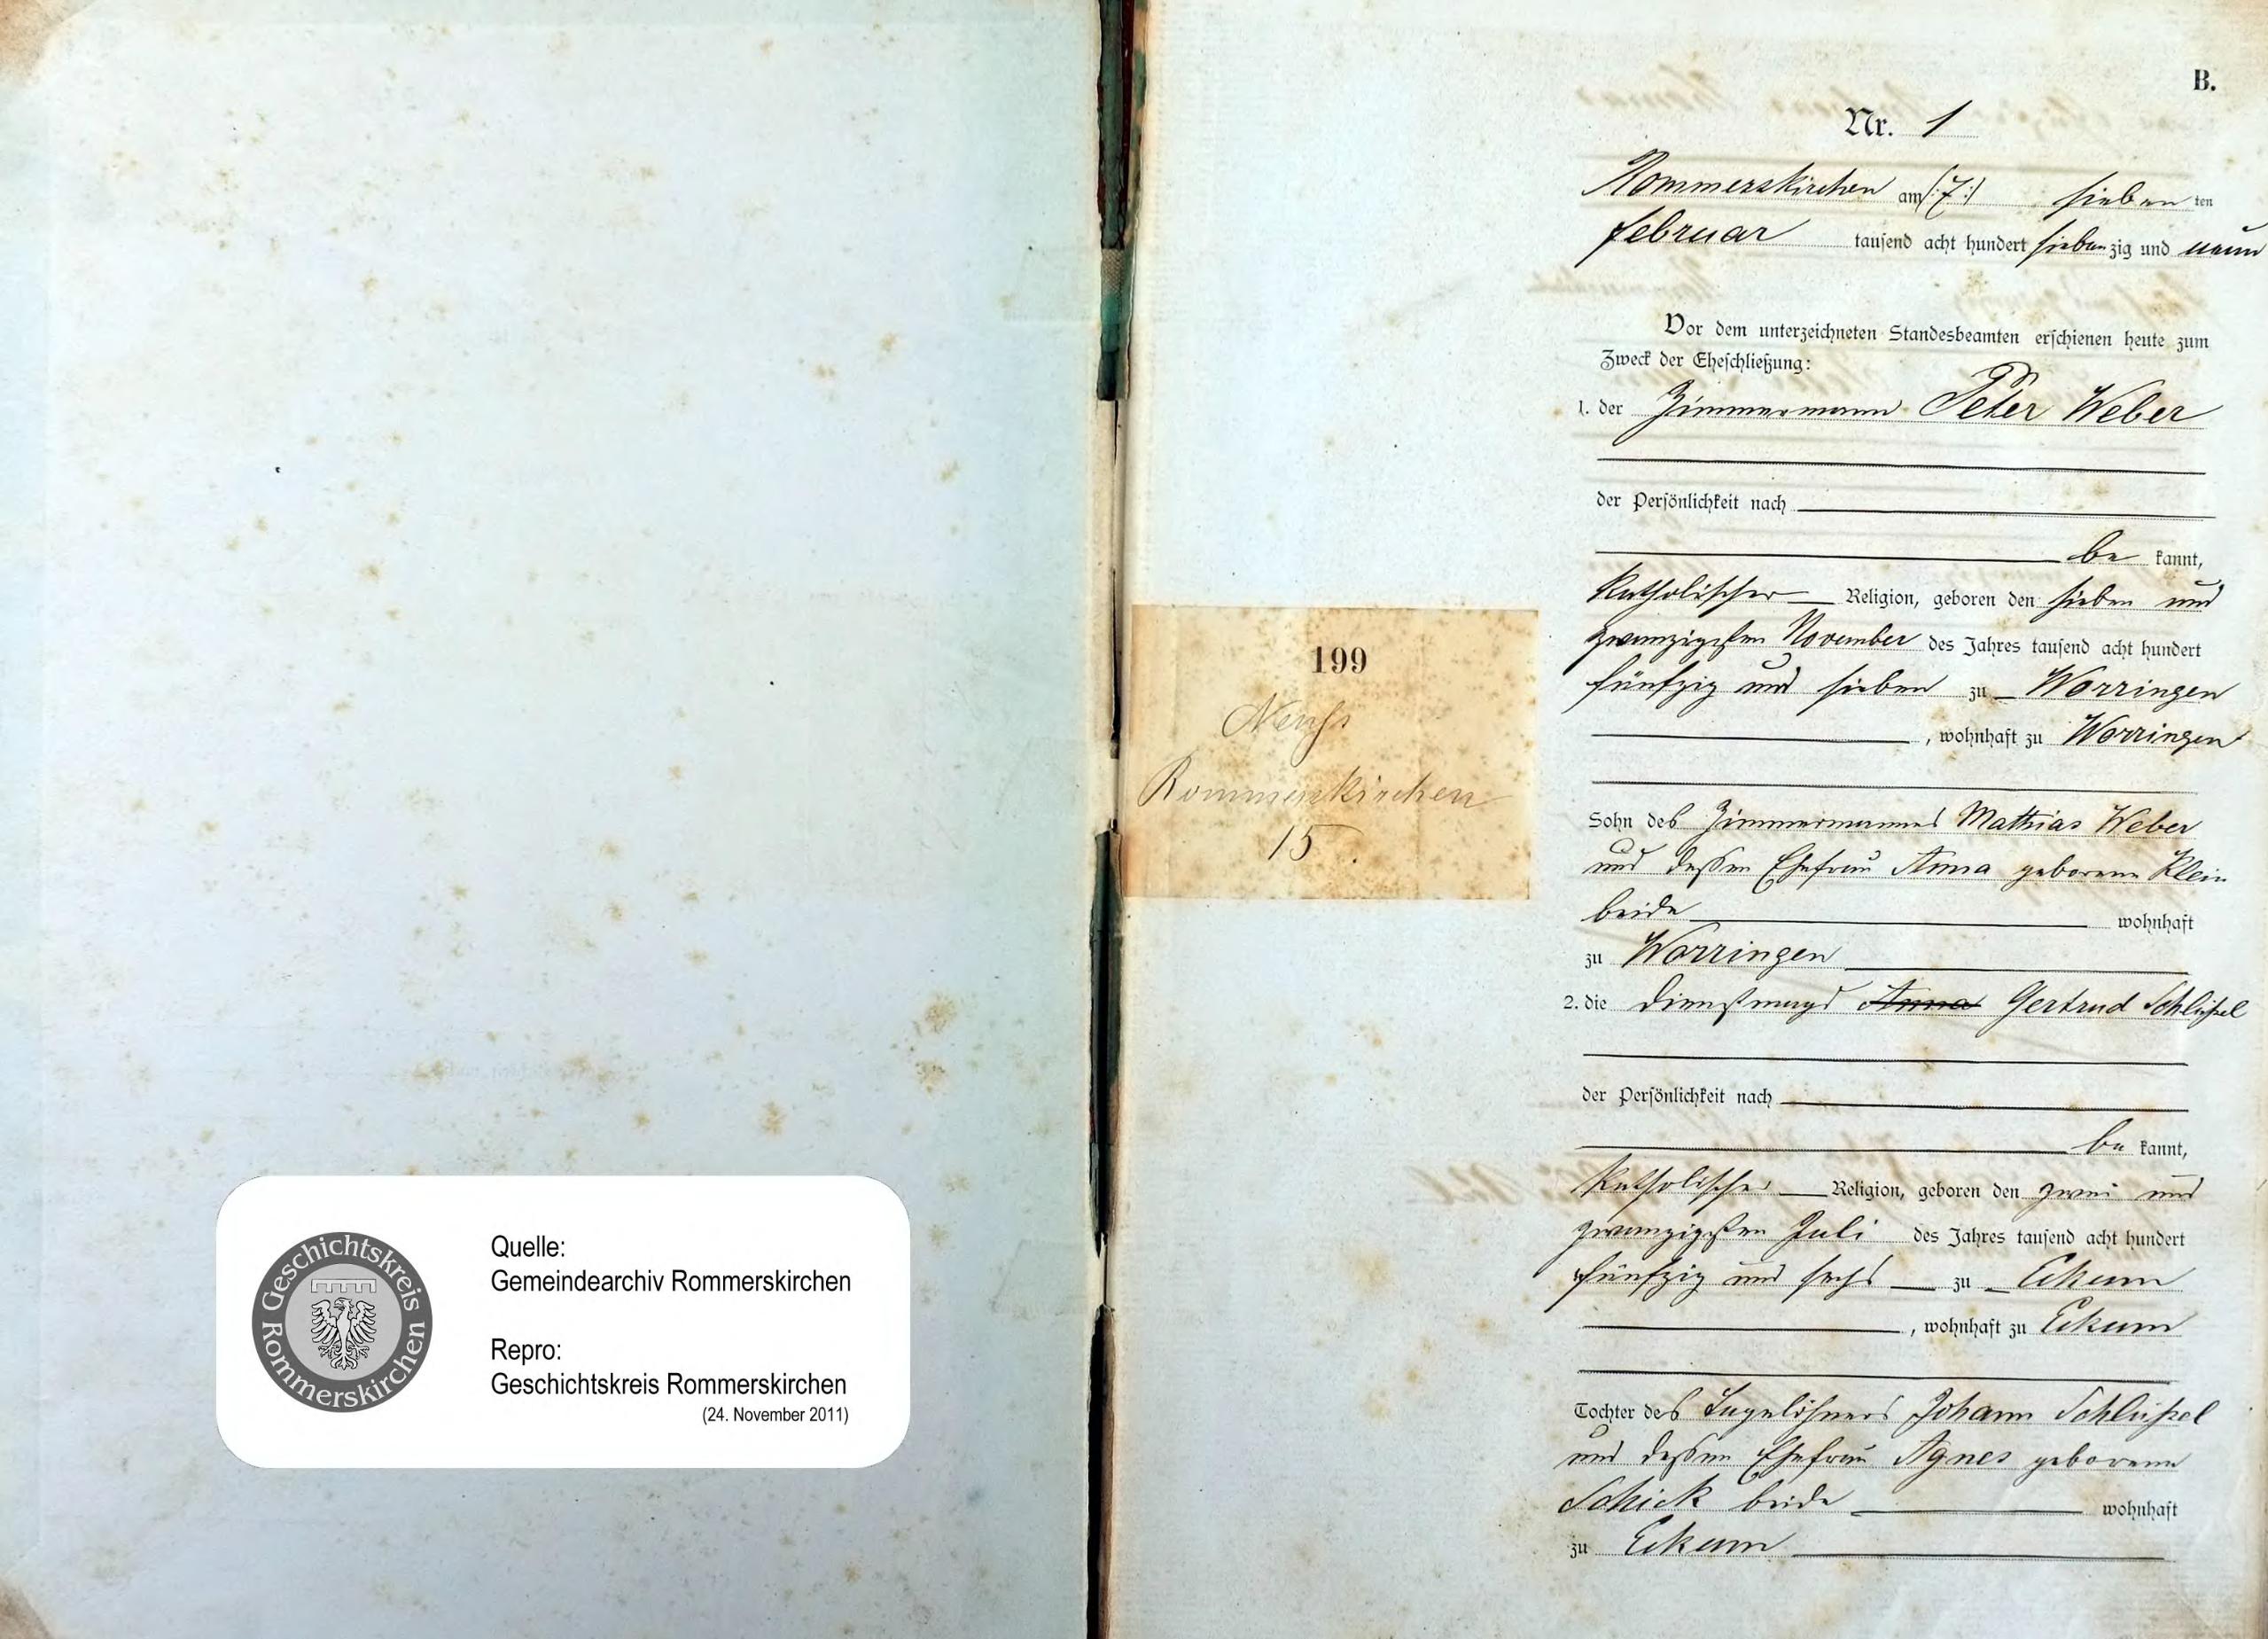 Geschichtskreis Rommerskirchen
Quelle:
Gemeindearchiv Rommerskirchen
Repro:
Geschichtskreis Rommerskirchen
(24. November 2011)
199
Neuss
Rommerskirchen
15.
B.
Nr. 1
Rommerskirchen am (:7:) sieben ten
Februar tausend acht hundert sieben zig und neun
Vor dem unterzeichneten Standesbeamten erschienen heute zum
Zweck der Eheschließung:
1. der Zimmermann Peter Weber
der Persönlichkeit nach
be kannt,
katholischer Religion, geboren den sieben und
zwanzigsten November des Jahres tausend acht hundert
fünfzig und sieben zu Worringen
, wohnhaft zu Worringen
Sohn des Zimmermannes Mathias Weber
und dessen Ehefrau Anna geborene Klein
beide wohnhaft
zu Worringen
2. die Dienstmagd Anna Gertrud Schlüßel
der Persönlichkeit nach
be kannt,
katholischer Religion, geboren den zwei und
zwanzigsten Juli des Jahres tausend acht hundert
fünfzig und sechs zu Eckum
, wohnhaft zu Eckum
Tochter des Tagelöhners Johann Schlüßel
und dessen Ehefrau Agnes geborene
Schick beide wohnhaft
zu Eckum